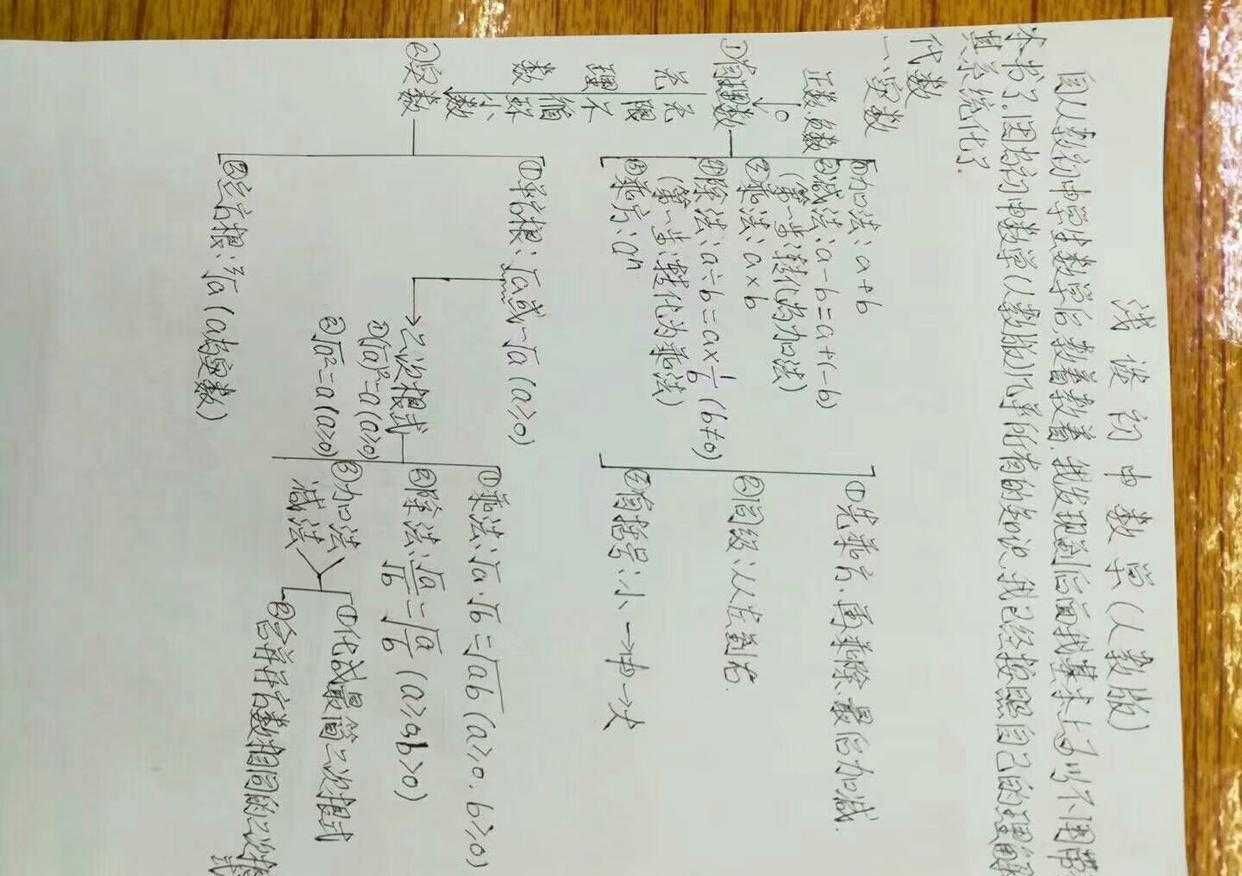 浅谈初中数学(人教版)
自从教初中学生数学后,教着教着,我发现到后面我基本上可以不用带
本书了.因为初中数学(人教版)几乎所有的知识,我已经按照自己的理解
其系统化了.
代数
一、实数
正数、0、负数
①有理数
①加法:a+b
②减法:a-b=a+(-b)
(第一步:转化为加法)
③乘法:a×b
④除法:a÷b=a×1/b(b≠0)
(第一步:转化为乘法)
⑤乘方:aⁿ
①先乘方,再乘除,最后加减.
②同级:从左到右.
③有括号:小→中→大
无限不循环小数
无理数
②实数
①平方根:√a或-√a(a≥0)
二次根式
①(√a)²=a(a≥0)
②√a²=a(a≥0)
①乘法:√a·√b=√ab(a≥0,b≥0)
②除法:√a/√b=√(a/b)(a≥0b>0)
③加法
减法
①化成最简二次根式
②合并开方数相同的二次根式
②立方根:³√a(a为实数)